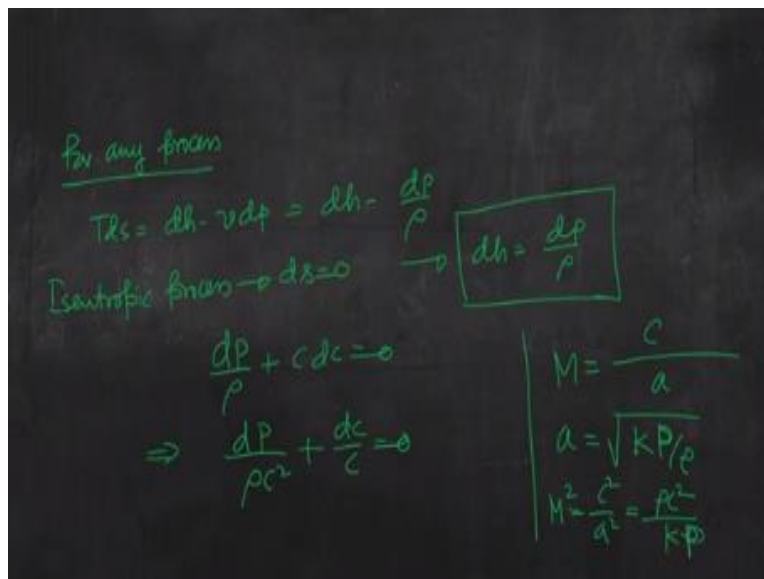 For any process
Tds = dh - vdp = dh - dp/ρ
Isentropic process → ds=0 → dh = dp/ρ
dP/ρ + cdc = 0
⇒ dP/ρc² + dc/c = 0
M = c/a
a = √kP/ρ
M² = c²/a² = ρc²/kP